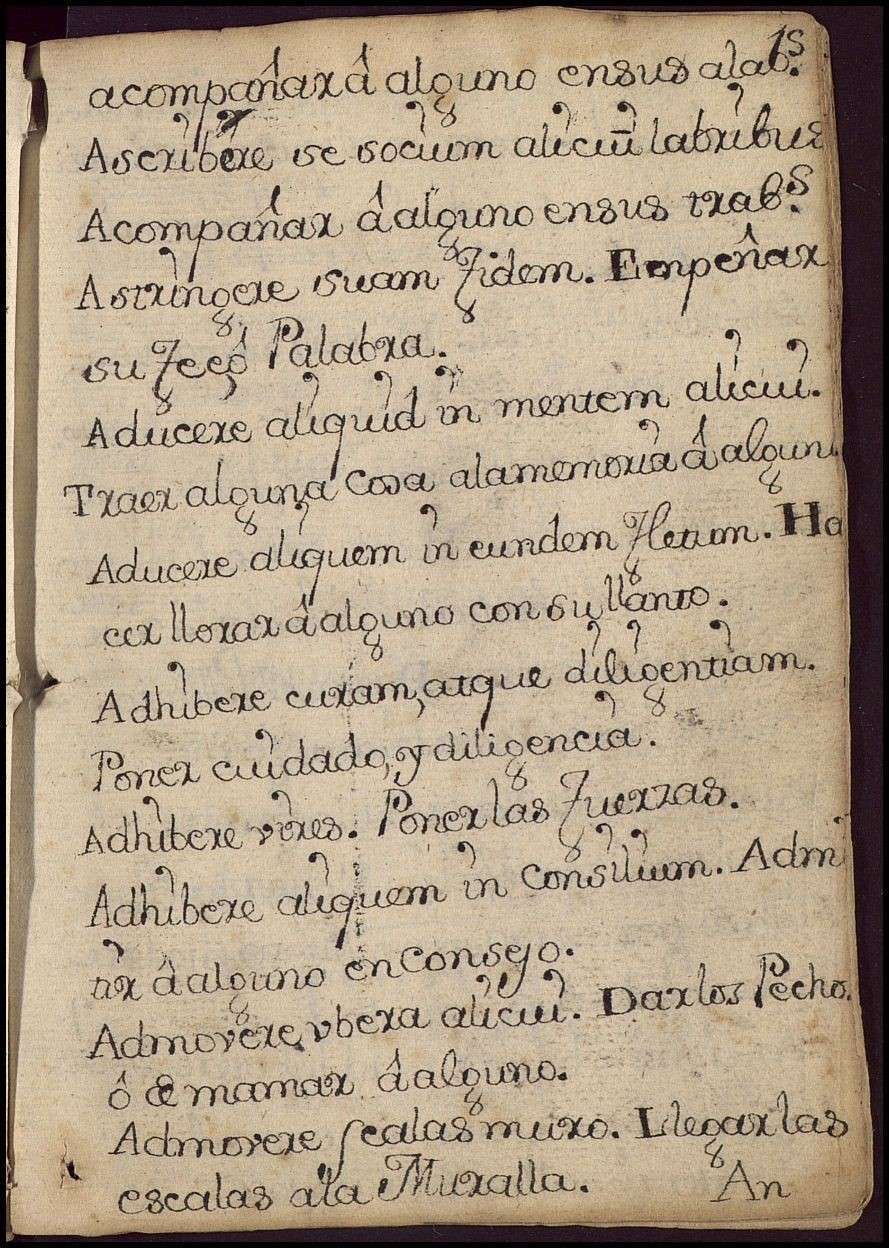 acompañar â alguno ensus alab.s
Ascribere se socium alicui labribus
Acompañar â alguno ensus trab.s
Astringere suam Fidem. Empeñar
su Feé, ô Palabra.
Aducere aliquid in mentem alicui.
Traer alguna Cosa alamemoria â algun
Aducere aliquem in eundem Fletum. Ha
cer llorar â alguno con su llanto.
Adhibere curam, atque diligentiam.
Poner cuidado, y diligencia.
Adhibere vires. Poner las Fuerzas.
Adhibere aliquem in Consilium. Admi
tir â alguno en Consejo.
Admovere, vbera alicui. Darlos Pecho.
ô de mamar â alguno.
Admovere scalas muro. Llegar las
escalas ala Muralla.
An